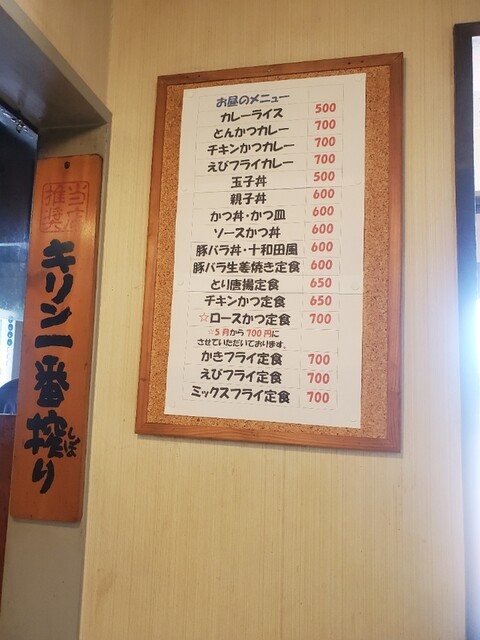 お昼のメニュー
カレーライス 500
とんかつカレー 700
チキンかつカレー 700
えびフライカレー 700
玉子丼 500
親子丼 600
かつ丼・かつ皿 600
ソースかつ丼 600
豚バラ丼・十和田風 600
豚バラ生姜焼き定食 600
とり唐揚定食 650
チキンかつ定食 650
☆ロースかつ定食 700
☆5月から700円に
させていただいております。
かきフライ定食 700
えびフライ定食 700
ミックスフライ定食 700
当店
推奨
キリン一番搾り
しぼ